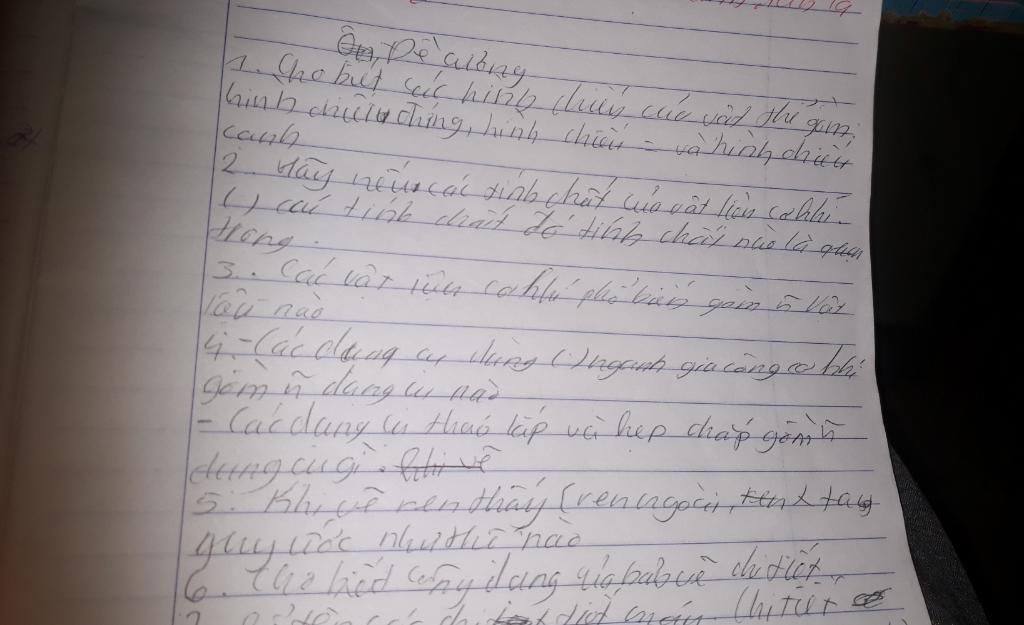 Đề cương
1. Cho biết các hình chiếu của vật thể gồm:
hình chiếu đứng, hình chiếu = và hình chiếu
cạnh
2. Hãy nêu các tính chất của vật liệu cơ khí.
(.) các tính chất đó tính chất nào là quan
trọng.
3. Các vật liệu cơ khí phổ biến gồm ~ vật
liệu nào
4. - Các dụng cụ dùng (.) ngành gia công cơ khí
gồm ~ dụng cụ nào
- Các dụng cụ tháo lắp và kẹp chặt gồm ~
dụng cụ gì.
5. Khi vẽ ren thấy (ren ngoài,
quy ước như thế nào
6. Cho biết công dụng của bản vẽ chi tiết
chi tiết